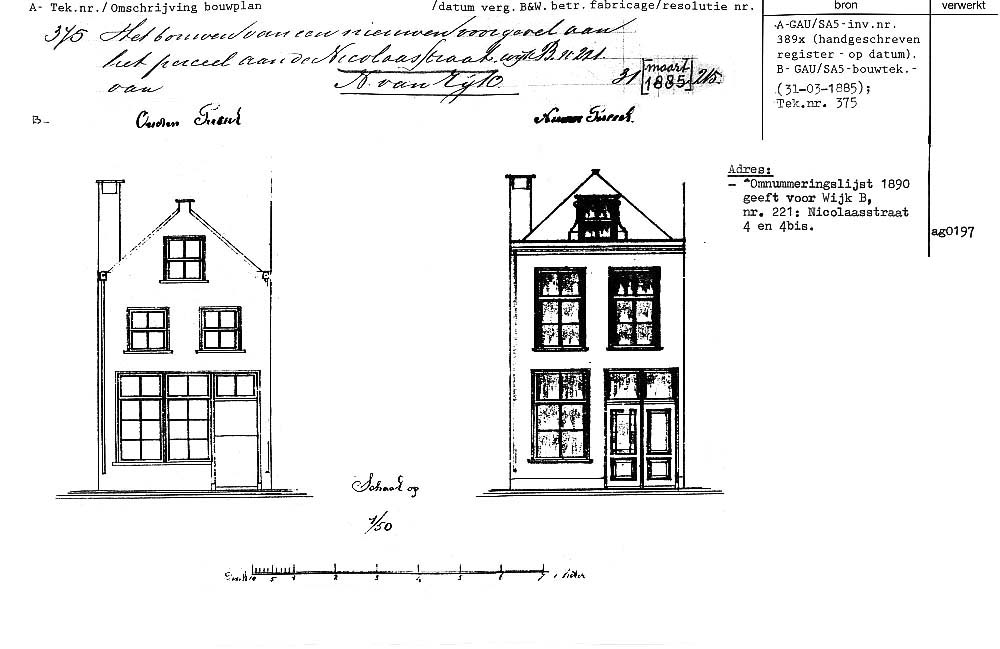 A- Tek.nr./Omschrijving bouwplan /datum verg. B&W. betr. fabricage/resolutie nr.
bron
verwerkt
375 Het bouwen van een nieuwen voorgevel aan
het perceel aan de Nicolaasstraat wijk B. n° 221.
van N. van Rijk. 31 [maart 1885] 215.
A-GAU/SA5-inv.nr.
389x (handgeschreven
register - op datum).
B- GAU/SA5-bouwtek.-
(31-03-1885);
Tek.nr. 375
B-
Ouden Toestand
Nieuwen Toestand.
Adres:
- "Omnummeringslijst 1890
geeft voor Wijk B,
nr. 221: Nicolaasstraat
4 en 4bis.
ag0197
Schaal op
1/50
10 5 1 2 3 4 5 6 7